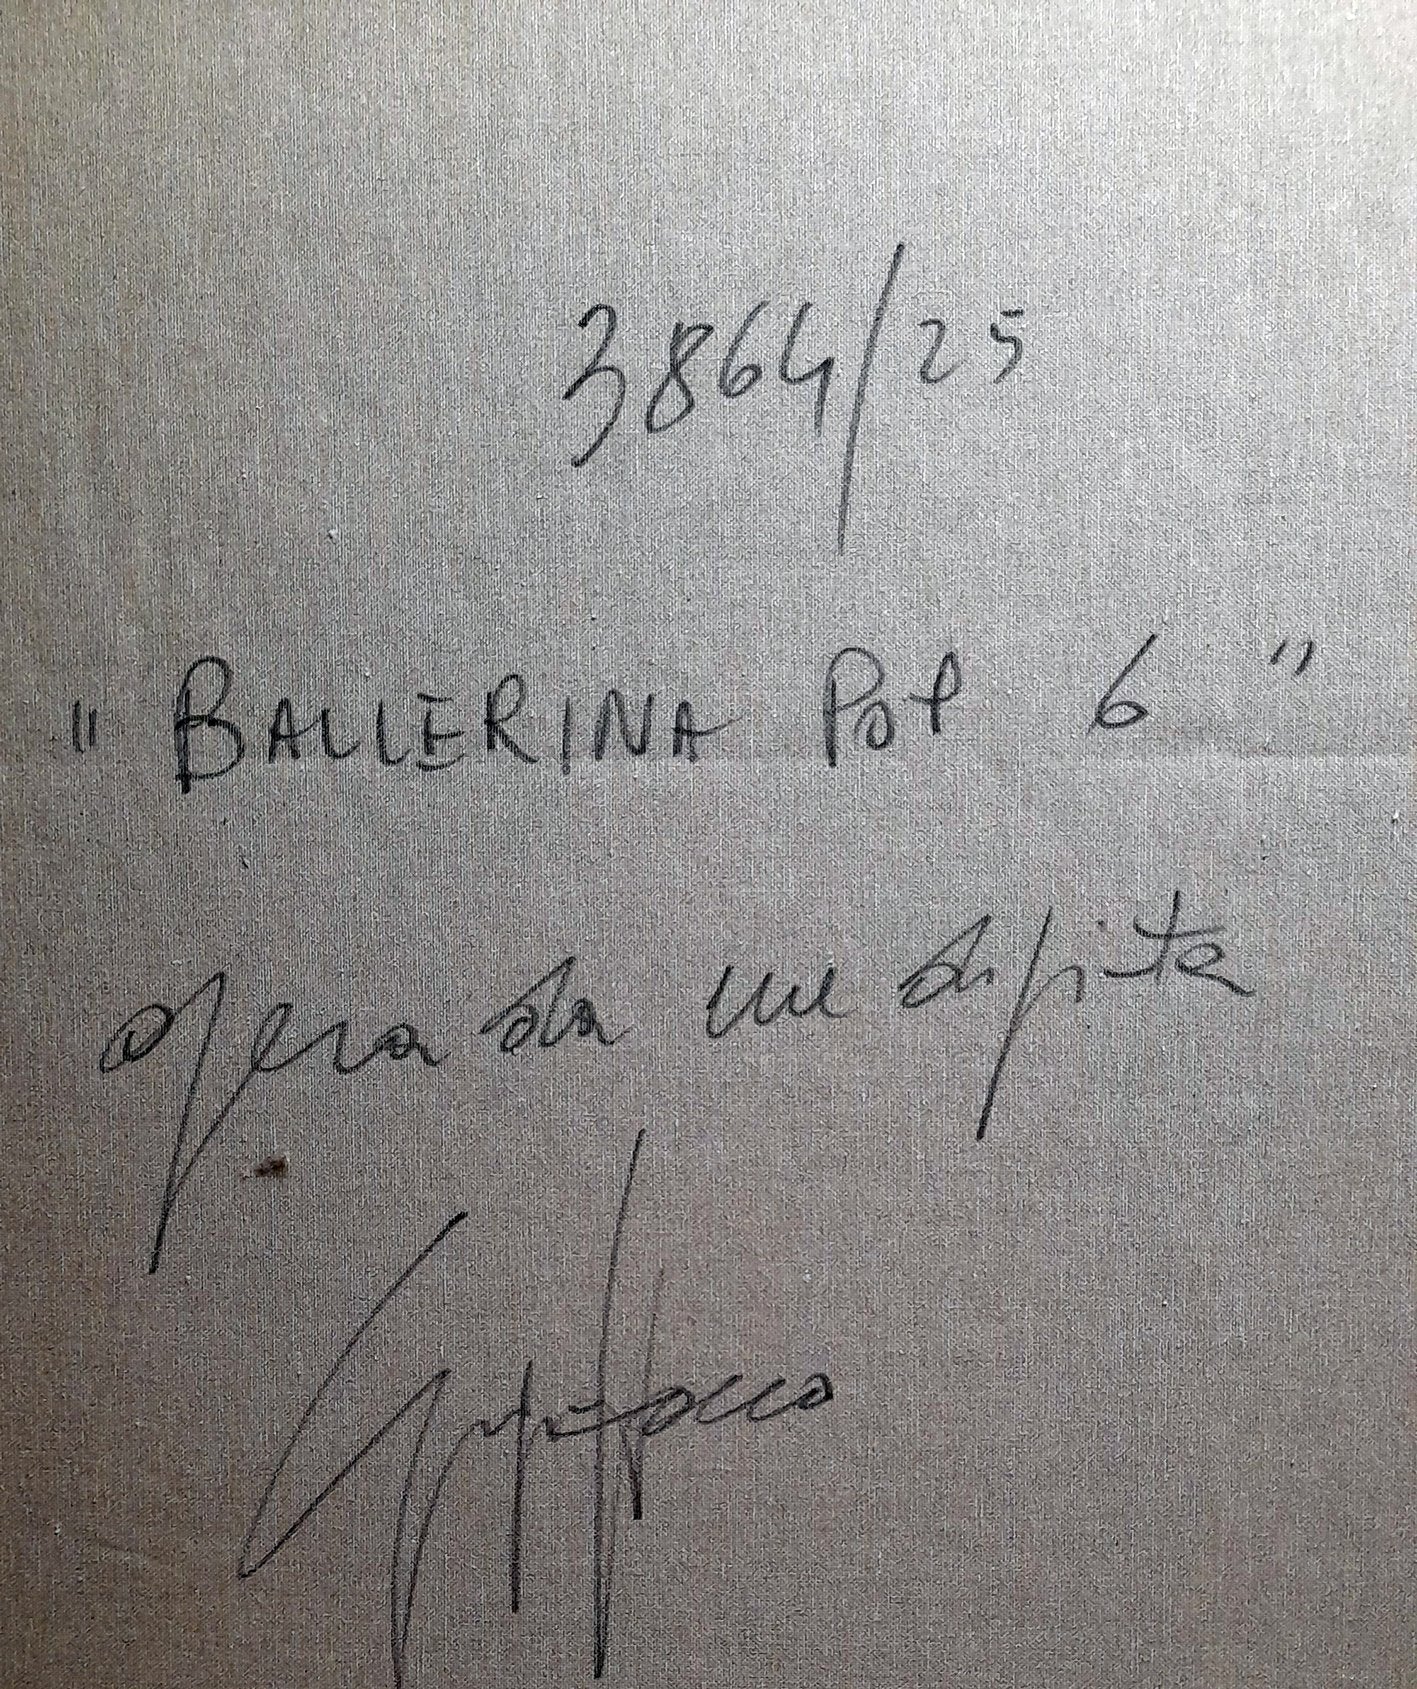 3864/25
"BALLERINA POP 6"
opera da me dipinta